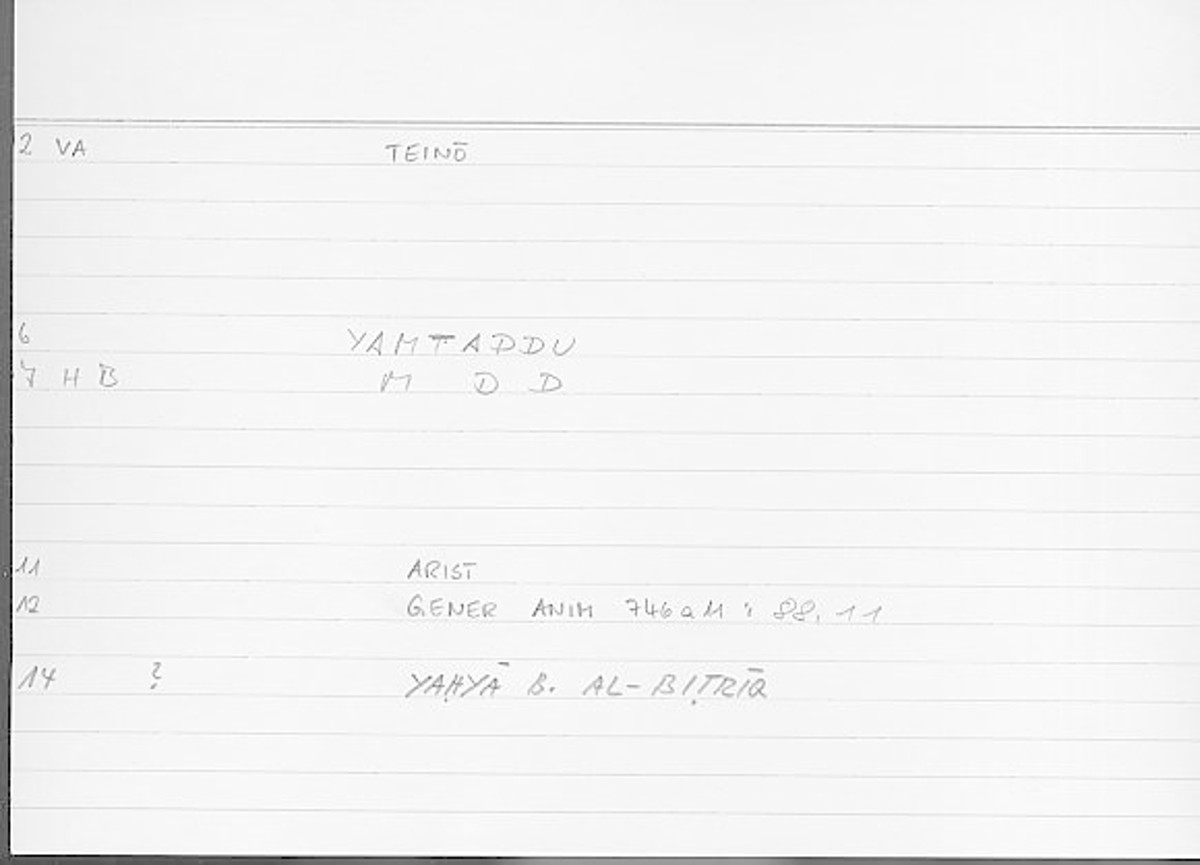 2 VA TEINŌ
6 YAMTADDU
7 H B M D D
11 ARIST
12 GENER ANIM 746a11 : 88, 11
14 ? YAḤYĀ B. AL-BIṬRĪQ